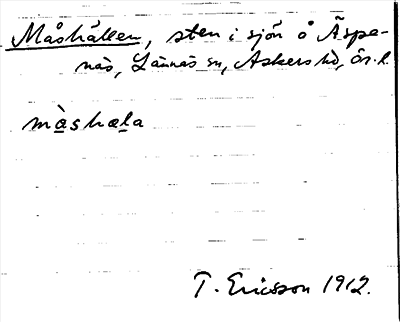 Måshällen, sten i sjön å Äspe-
näs, Lännäs sn, Askers hd, Ör. l.
màshæla
T. Ericsson 1912.